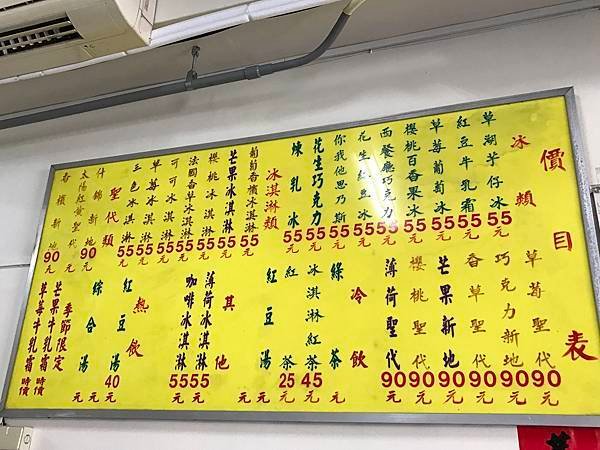 價目表
冰類
草湖芋仔冰 55元
紅豆牛乳霜 55元
草莓葡萄冰 55元
櫻桃百香果冰 55元
西餐廳巧克冰 55元
花生紅豆冰 55元
你我他思乃斯 55元
花生巧克力 55元
煉乳冰 55元
冰淇淋類
葡萄香檳冰淇淋 55元
芒果冰淇淋 55元
櫻桃冰淇淋 55元
法國香草冰淇淋 55元
可可冰淇淋 55元
草莓冰淇淋 55元
三色冰淇淋 55元
聖代類
什錦新地 90元
太陽紅黃聖代 元
香檳新地 90元
草莓聖代 90元
巧克力新地 90元
香草聖代 90元
芒果新地 90元
櫻桃聖代 90元
薄荷聖代 90元
冷飲
綠茶 元
冰淇淋紅茶 45元
紅茶 25元
紅豆湯 元
其他
薄荷冰淇淋 55元
咖啡冰淇淋 55元
熱飲
紅豆湯 40元
綜合湯 元
季節限定
芒果牛乳霜 時價
草莓牛乳霜 時價